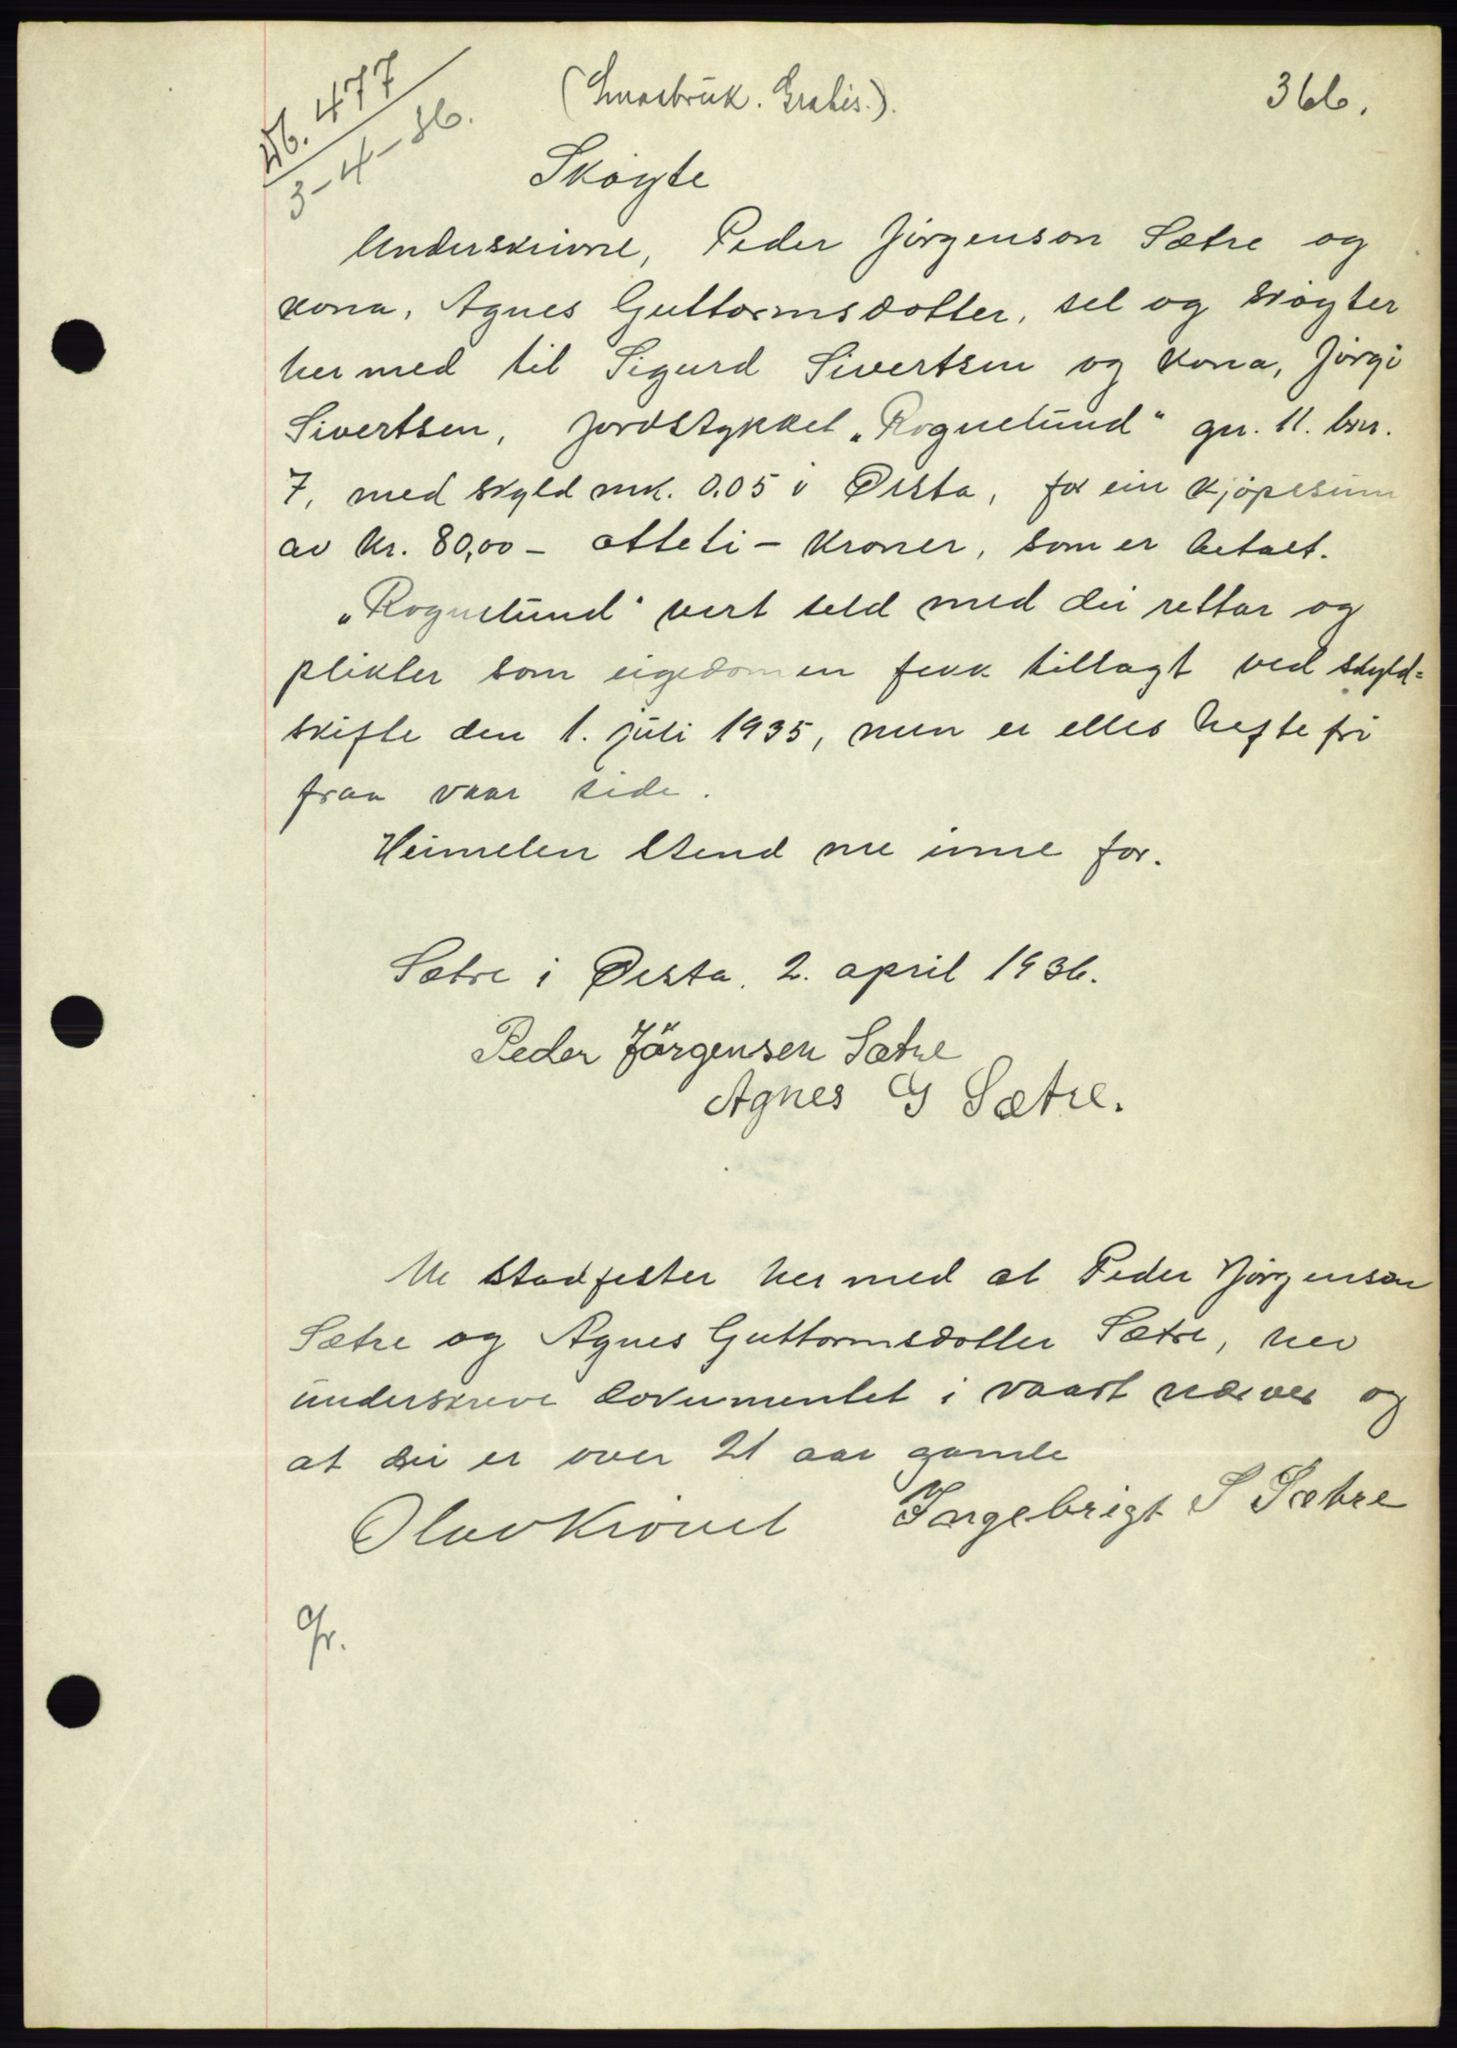 (Smaabruk. Gratis.).
366.
Db. 477
3-4-36.
Skøyte
Underskrivne, Peder Jørgenson Sætre og
kona, Agnes Guttormsdotter, sel og skøyter
hermed til Sigurd Sivertsen og kona, Jørgi
Sivertsen, jordstykket „Rognelund" gnr. 11. bnr.
7, med skyld mk. 0.05 i Ørsta, for ein kjøpesum
av kr. 80,00 - otteti - kroner, som er betalt.
„Rognelund" vert seld med dei rettar og
plikter som eigedomen fekk tillagt ved skyld=
skifte den 1. juli 1935, men er elles heftefri
fraa vaar side.
Heimelen stend me inne for.
Sætre i Ørsta. 2. april 1936.
Peder Jörgensen Sætre
Agnes G Sætre.
Me stadfester hermed at Peder Jørgenson
Sætre og Agnes Guttormsdotter Sætre, hev
underskreve dokumentet i vaart nærver og
at dei er over 21 aar gamle
Olav Kiønel Ingebrigt S Sætre